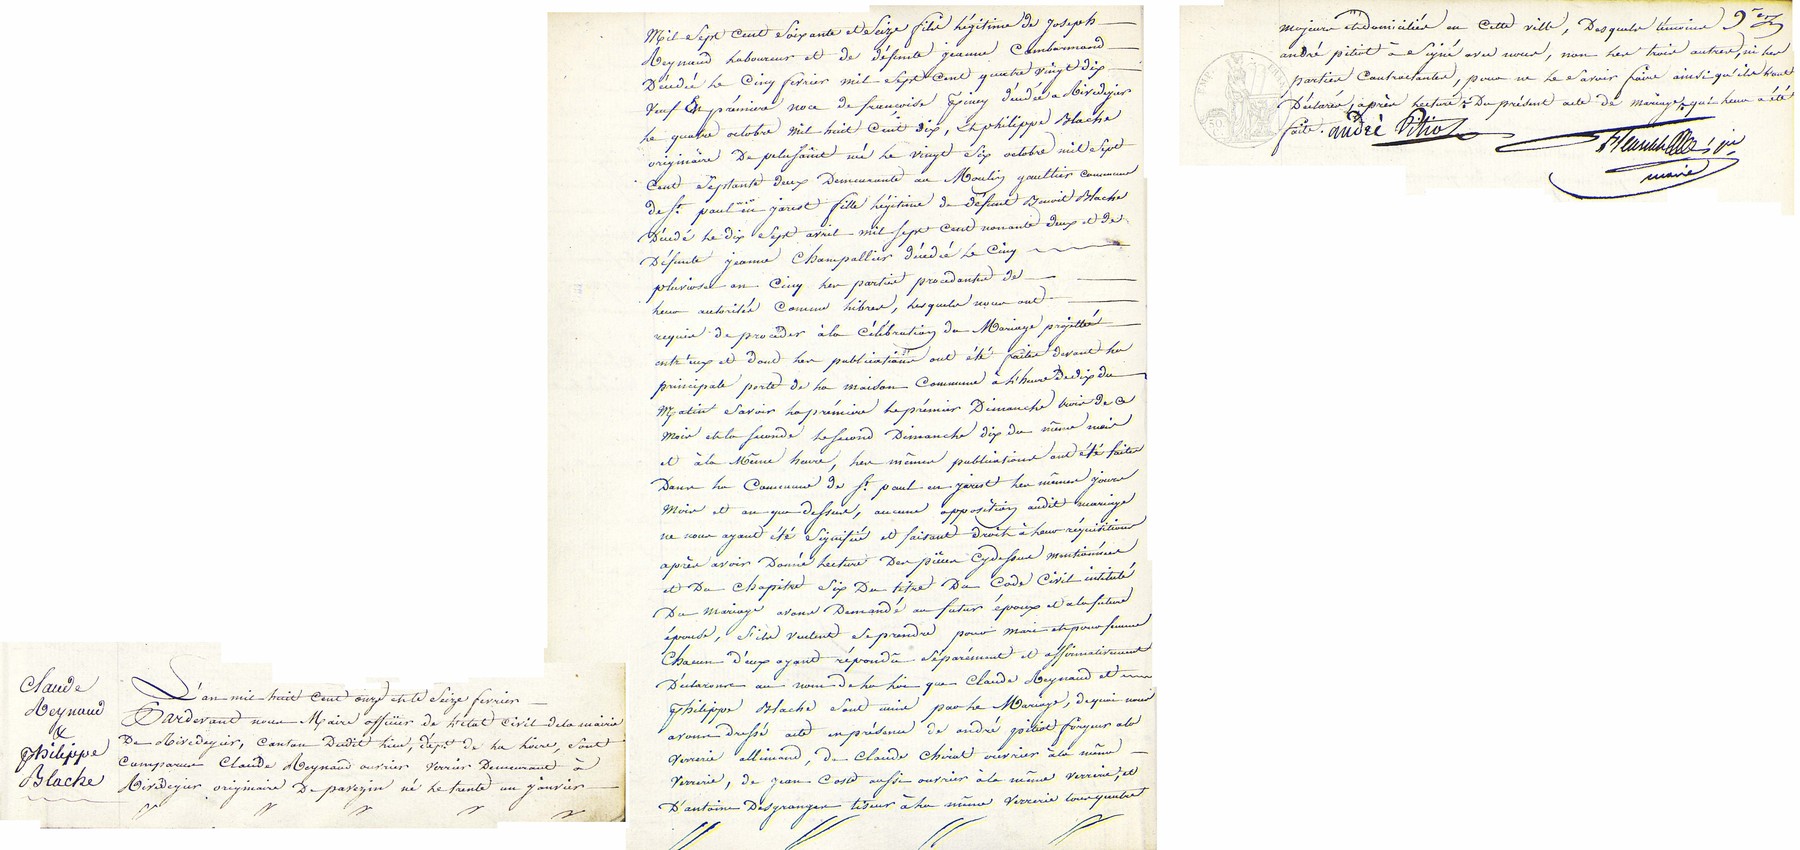 Claude
Reynaud
&
Philippe
Blache
L'an mil huit cent onze et le seize fevrier
Pardevant nous Maire officier de l'etat Civil de la mairie
De Rivedegier, canton Dudit lieu, dépt. de la loire, sont
Comparus Claude Reynaud ouvrier verrier Demeurant à
Rivedegier originaire De pavezin né le trente un janvier
Mil sept cent soixante et seize fils légitime de Joseph
Reynaud laboureur et de défunte jeanne
Décédée le Cinq fevrier mil sept cent quatre vingt dix
veuf En prémiere noce de françoise Epiney décédée a Rivedegier
le quatre octobre mil huit cent dix, Et philippe Blache
originaire De pelussint né le vingt six octobre mil sept
cent septante deux Demeurante au Moulin gaultier commune
de St. paul en jarest fille légitime de défunt Benoit Blache
Décédé le dix sept avril mil sept cent nonante deux et de
Défunte jeanne Champallier décédée Le Cinq
pluviose an Cinq les parties procedantes de
leur autorités comme libres, lesquels nous ont
requis de proceder à la célébration du Mariage projetté
entr'eux et dont les publications ont été faites devant la
principale porte de la maison Commune à l'heure De dix du
Matin savoir la prémiere le prémier Dimanche trois de ce
Mois et la seconde le second Dimanche dix du même mois
et à la Même heure, les mêmes publications ont été faites
Dans la Commune de St. paul en jarest les mêmes jours
Mois et an que dessus, aucune opposition audit mariage
ne nous ayant été signifiée et faisant droit à leur réquisitions
après avoir Donné lecture Des pièces Cydessus mentionnées
et Du Chapitre six Du titre Du Code Civil intitulé
Du Mariage avons Demandé au futur époux et a la future
épouse, s'ils veulent se prendre pour mari et pour femme
Chacun d'eux ayant répondu séparément et affirmativement
Déclarons au nom de la loi que Claude Reynaud et
Philippe Blache sont unis par le Mariage, de quoi nous
avons dressé acte en présence de andré pitiot forgeur a la
verrerie allimand, de Claude Chirat ouvrier à la même
verrerie, de jean Coste aussi ouvrier à la même verrerie, et
D'antoine Desgranges tiseur à la même verrerie tous quatre
majeurs et domiciliés en Cette ville, Desquels témoins
andré pitiot à signé avec nous, non les trois autres, ni les
parties Contractantes, pour ne le savoir faire ainsi qu'ils l'ont
Déclarés, après lecture Du présent acte de mariage qui leur a été
faite. andré Pitiot
maire